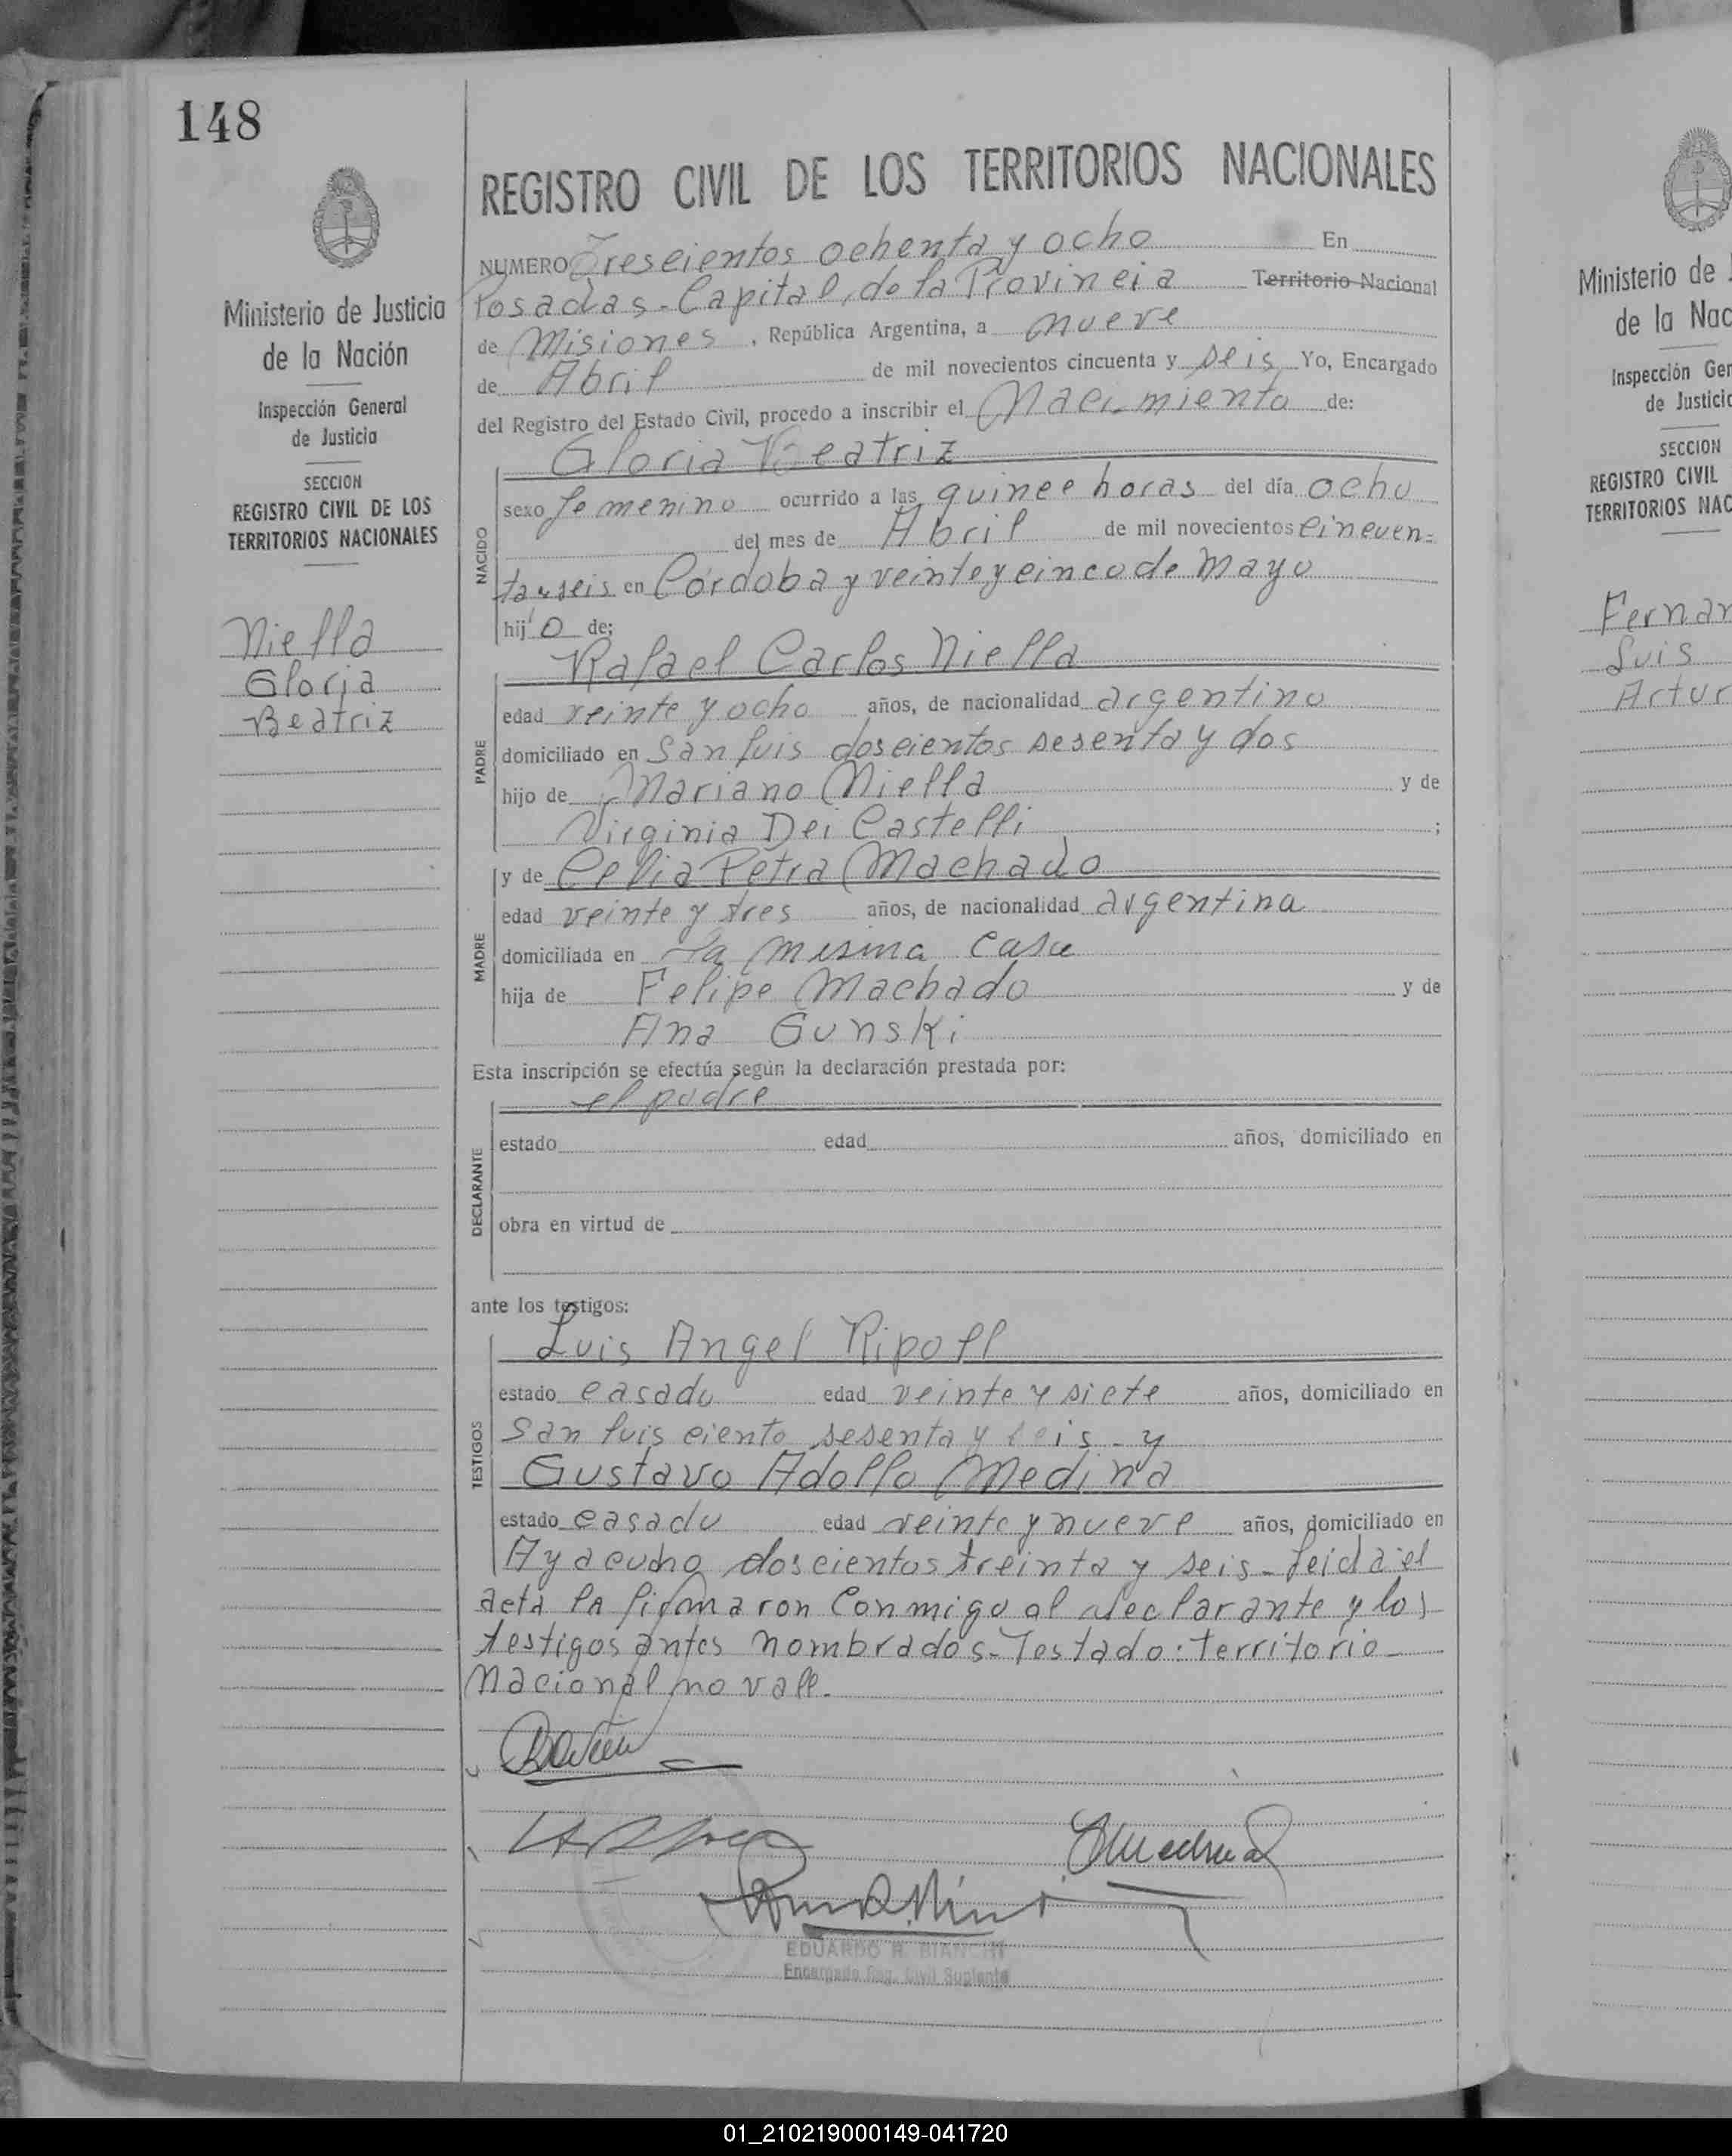 148
REGISTRO CIVIL DE LOS TERRITORIOS NACIONALES
Ministerio de Justicia
de la Nación
Inspección General
de Justicia
SECCION
REGISTRO CIVIL DE LOS
TERRITORIOS NACIONALES
Niella
Gloria
Beatriz
NUMERO Trescientos ochenta y ocho En
Posadas-Capital, de la Provincia Territorio Nacional
de Misiones, República Argentina, a nueve
de Abril de mil novecientos cincuenta y seis Yo, Encargado
del Registro del Estado Civil, procedo a inscribir el Nacimiento de:
Gloria Beatriz
NACIDO
sexo femenino ocurrido a las quince horas del día ocho
del mes de Abril de mil novecientos cincuen=
ta y seis en Córdoba y veinte y cinco de Mayo
hijo de:
Rafael Carlos Niella
PADRE
edad veinte y ocho años, de nacionalidad argentino
domiciliado en San luis doscientos sesenta y dos
hijo de Mariano Niella y de
Virginia Dei Castelli ;
y de Celia Petra Machado
MADRE
edad veinte y tres años, de nacionalidad argentina
domiciliada en la misma casa
hija de Felipe Machado y de
Ana Gunski
Esta inscripción se efectúa según la declaración prestada por:
el padre
DECLARANTE
estado edad años, domiciliado en
obra en virtud de
ante los testigos:
Luis Angel Ripoll
TESTIGOS
estado casado edad veinte y siete años, domiciliado en
San luis ciento sesenta y seis - y
Gustavo Adolfo Medina
estado casado edad veinte y nueve años, domiciliado en
Ayacucho doscientos treinta y seis - leida el
acta la firmaron conmigo el declarante y los
testigos antes nombrados - Testado: territorio
Nacional no vale.
EDUARDO R. BIANCHI
Encargado Reg. Civil Suplente
Ministerio de J
de la Nac
Inspección Gen
de Justicia
SECCION
REGISTRO CIVIL
TERRITORIOS NAC
Fernan
Luis
Artur
01_210219000149-041720